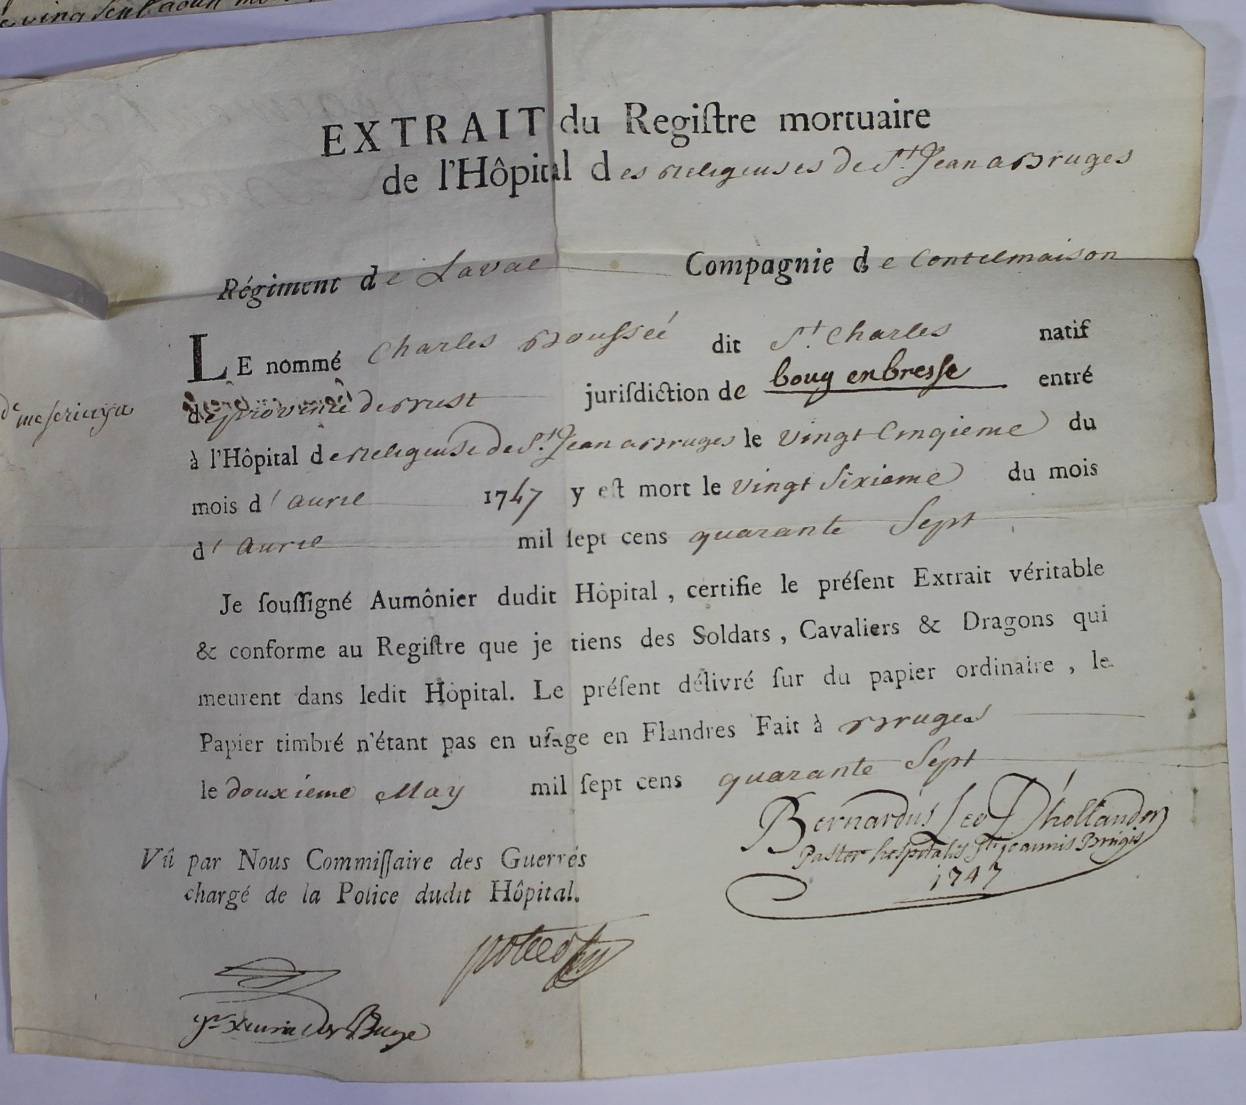 EXTRAIT du Regiſtre mortuaire
de l'Hôpital des Religeuses de St. Jean a Bruges
Régiment de Laval Compagnie de Contelmaison
LE nommé Charles Bousseé dit St. Charles natif
de province de Brust juriſdiction de bouq enbresse entré
à l'Hôpital de Religeuse de St. Jean a Bruges le vingt Cinqieme du
mois d'avril 1747 y eſt mort le vingt Sixieme du mois
d'avril mil ſept cens quarante Sept
Je ſouſſigné Aumônier dudit Hôpital, certifie le préſent Extrait véritable
& conforme au Regiſtre que je tiens des Soldats, Cavaliers & Dragons qui
meurent dans ledit Hôpital. Le préſent délivré ſur du papier ordinaire, le
Papier timbré n'étant pas en uſage en Flandres Fait à Bruges
le douxieme May mil ſept cens quarante Sept
Bernardus Leo D'hollander
Pastor hospitalis Sti Joannis Brugis
1747
Vû par Nous Commiſſaire des Guerres
chargé de la Police dudit Hôpital.